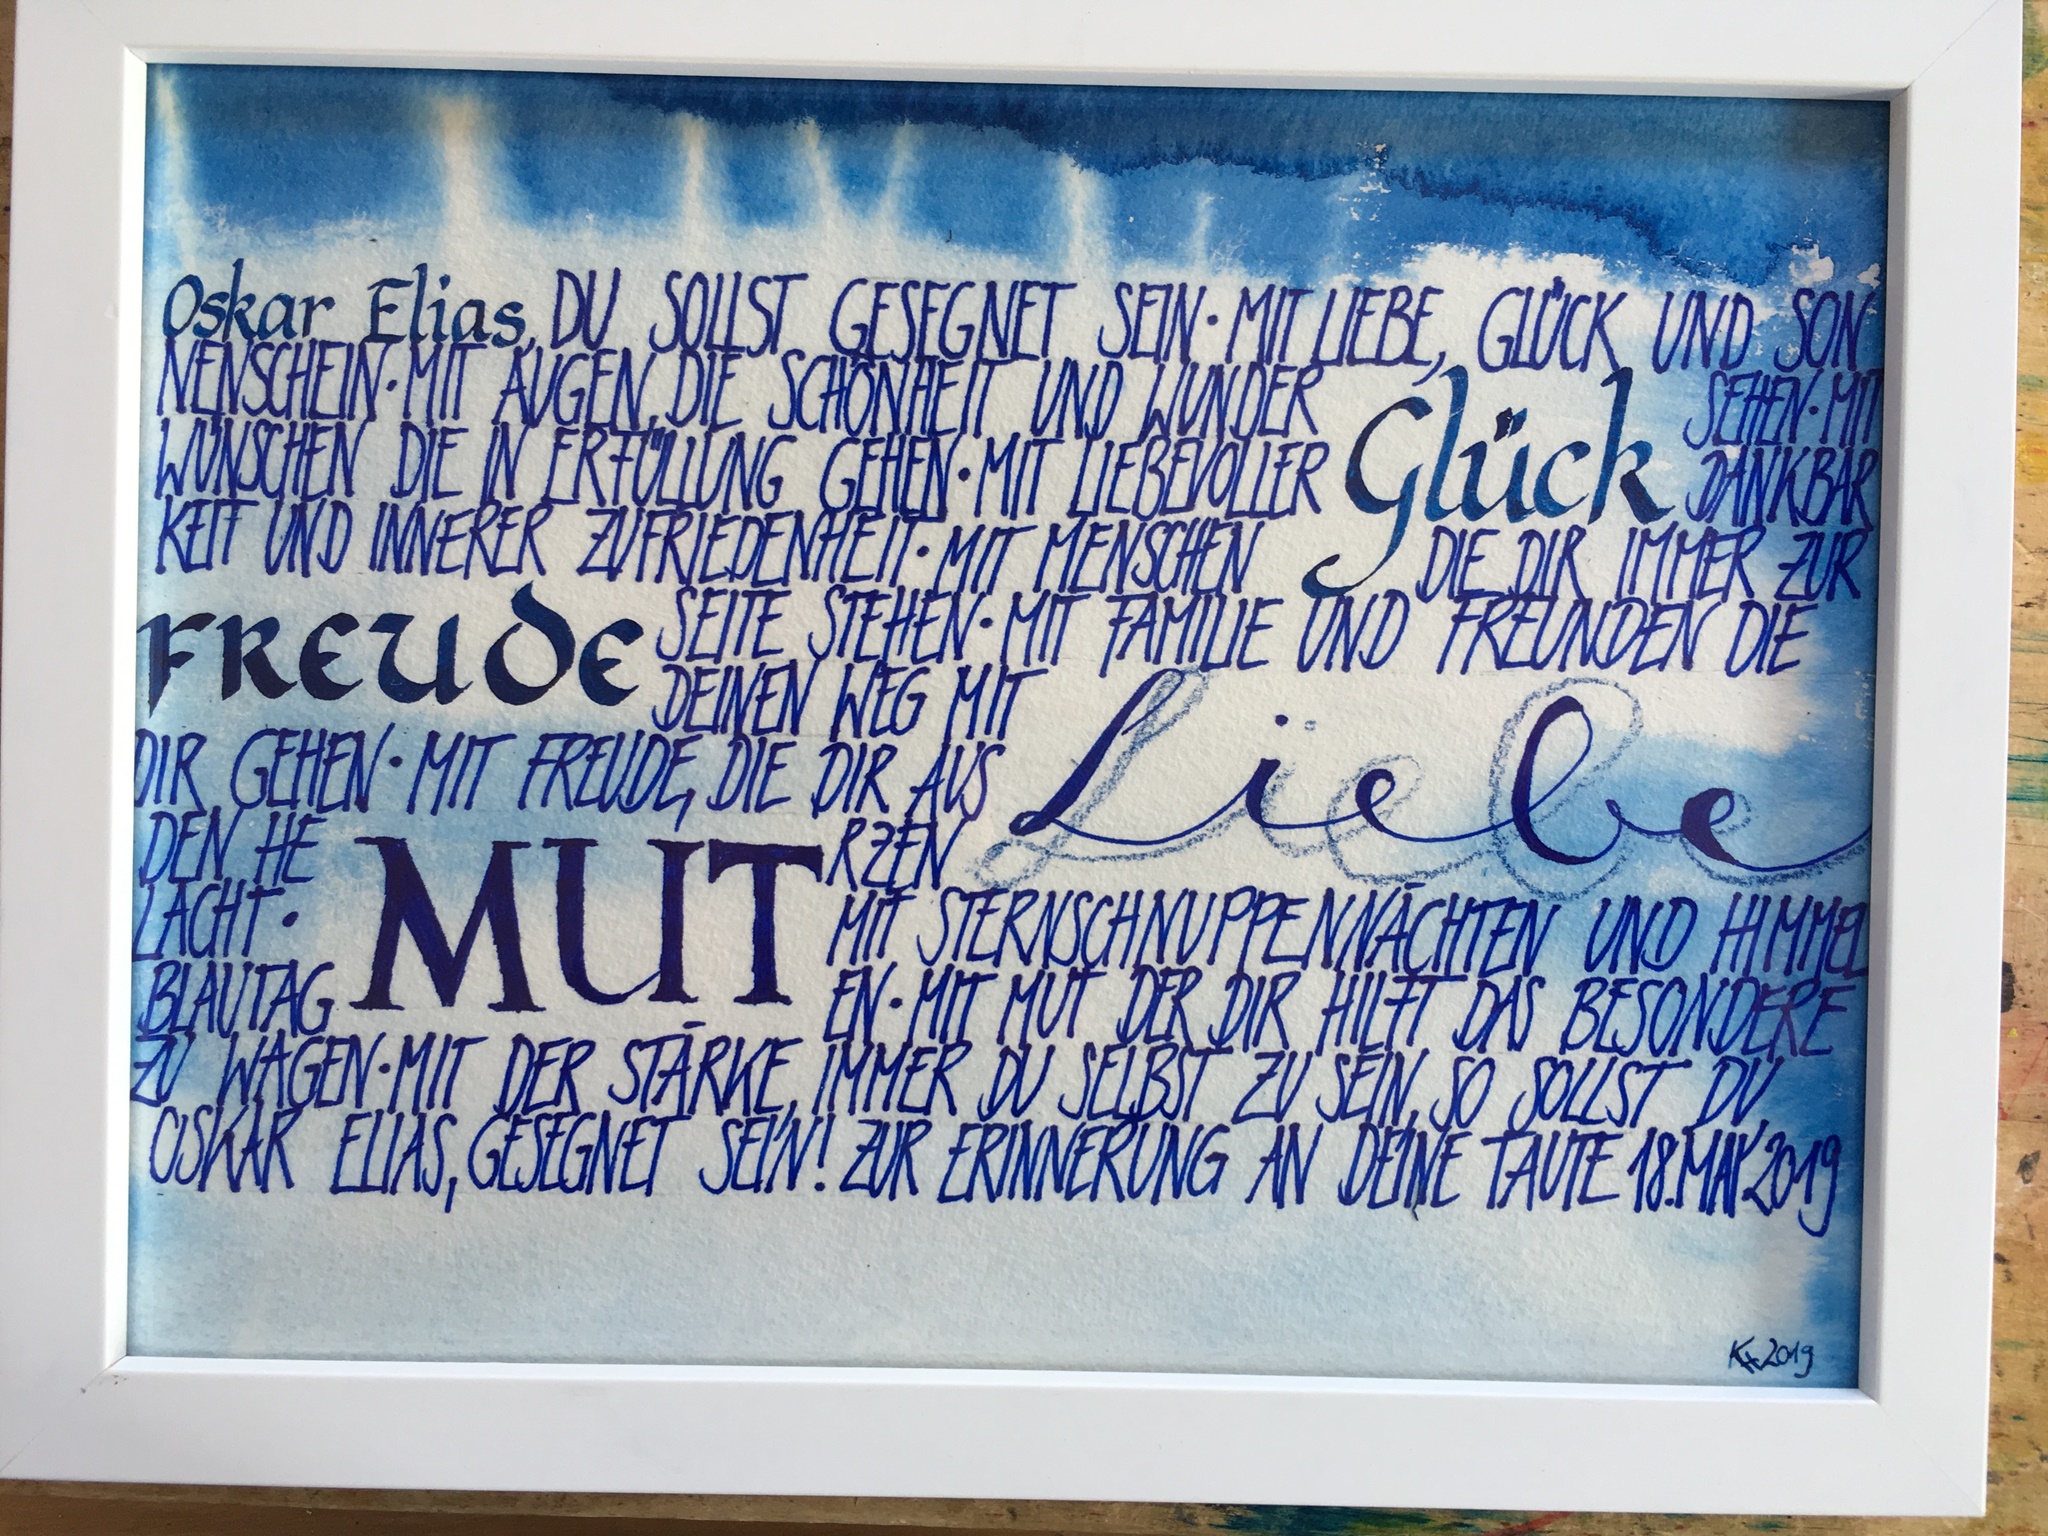 Oskar Elias, DU SOLLST GESEGNET SEIN · MIT LIEBE, GLÜCK UND SON
NENSCHEIN · MIT AUGEN, DIE SCHÖNHEIT UND WUNDER SEHEN · MIT
Glück
WÜNSCHEN DIE IN ERFÜLLUNG GEHEN · MIT LIEBEVOLLER DANKBAR
KEIT UND INNERER ZUFRIEDENHEIT · MIT MENSCHEN DIE DIR IMMER ZUR
FREUDE
SEITE STEHEN · MIT FAMILIE UND FREUNDEN DIE
DEINEN WEG MIT
Liebe
DIR GEHEN · MIT FREUDE, DIE DIR AUS
DEN HE RZEN
MUT
LACHT · MIT STERNSCHNUPPENNÄCHTEN UND HIMMEL
BLAUTAG EN · MIT MUT DER DIR HILFT DAS BESONDERE
ZU WAGEN · MIT DER STÄRKE, IMMER DU SELBST ZU SEIN, SO SOLLST DU
OSKAR ELIAS, GESEGNET SEIN! ZUR ERINNERUNG AN DEINE TAUFE 18. MAI 2019
2019